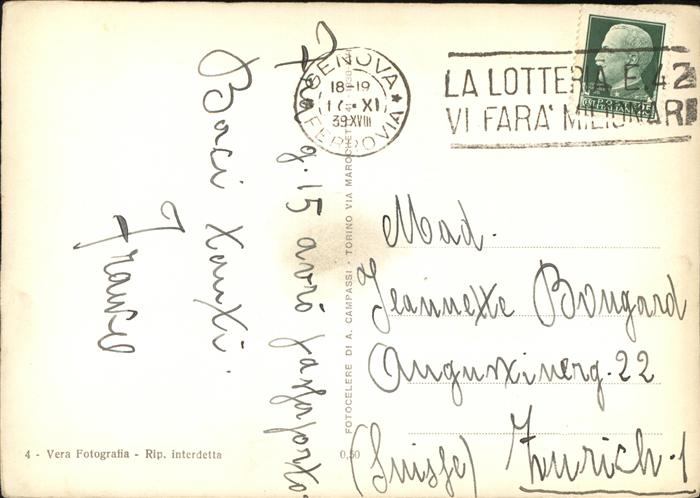 Fra g. 15 avrò passaporto.
Baci tanti.
Franco
GENOVA
18-19
XI
39 XVIII
FERROVIA
LA LOTTERIA E.42
VI FARA' MILIONARI
Mad.
Jeannette Bongard
Augustinerg. 22
(Suisse) Zurich-1
FOTOCELERE DI A. CAMPASSI - TORINO VIA MAROCHETTI 41
4 - Vera Fotografia - Rip. interdetta
0,50